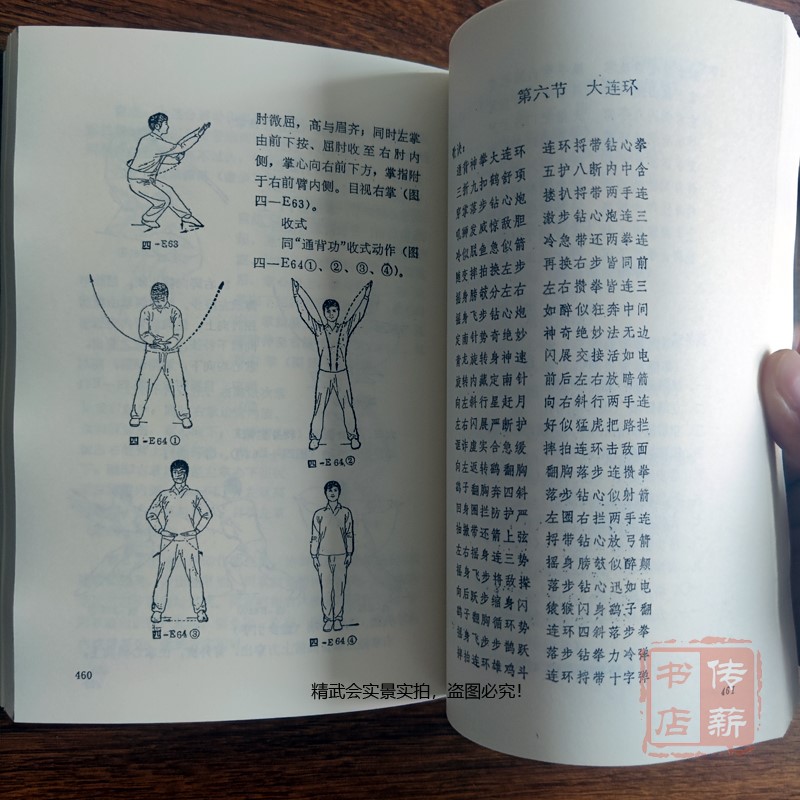 肘微屈，高与眉齐；同时左掌
由前下按、屈肘收至右肘内
侧，掌心向右前下方，掌指附
于右前臂内侧。目视右掌（图
四—E63）。
收式
同“通背功”收式动作（图
四—E64①、②、③、④）。
四-E63
四-E64①
四-E64②
四-E64③
四-E64④
460
第六节 大连环
歌诀：
通背神拳大连环 连环捋带钻心拳
三折九扣鹤舒项 五护八断内中含
劈掌落步钻心炮 搂扒捋带两手连
吼狮发威惊敌胆 激步钻心炮连三
冷似脱鱼急似箭 冷急带还两拳连
随变掸拍换左步 再换右步皆同前
摇身膀敧分左右 左右攒拳皆连三
摇身飞步钻心炮 如醉似狂奔中间
定南针势奇绝妙 神奇绝妙法无边
青龙旋转身神速 闪展交接活如电
旋转内藏定南针 前后左右放暗箭
向左斜行星赶月 向右斜行两手连
左右闪展严断护 好似猛虎把路拦
诓诈虚实合急缓 摔拍连环击敌面
向左返转鹞翻胸 翻胸落步连攒拳
鹞子翻胸奔四斜 落步钻心似射箭
回身圈拦防护严 左圈右拦两手连
抽撤带还箭上弦 捋带钻心放弓箭
左右摇身连三势 摇身膀敧似醉颠
摇身飞步将敌撵 落步钻心迅如电
向后跃步缩身闪 猿猴闪身鹞子翻
鹞子翻胸循环势 连环四斜落步拳
摇身飞步步鹊跃 落步钻拳力冷弹
掸拍连环雄鸡斗 连环捋带十字弹
461
精武会实景实拍，盗图必究！
传薪
书店